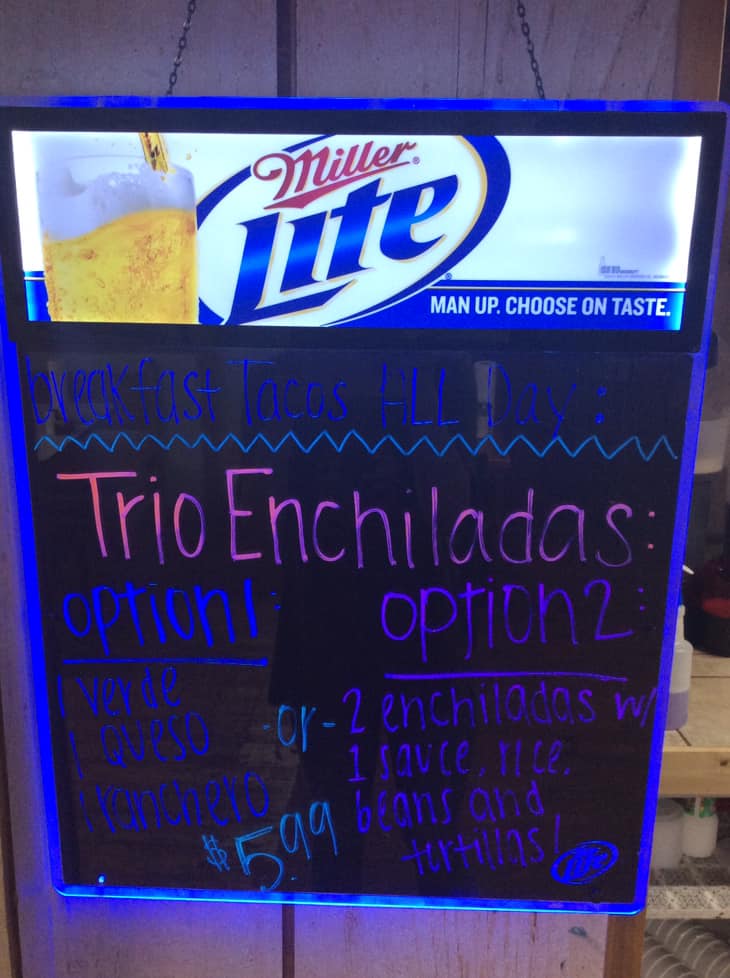 Miller
Lite
MAN UP. CHOOSE ON TASTE.
breakfast Tacos ALL Day:
Trio Enchiladas:
option 1: option 2:
1 verde
1 queso
1 ranchero
-or-
2 enchiladas w/
1 sauce, rice,
beans and
tortillas!
$5.99
Lite